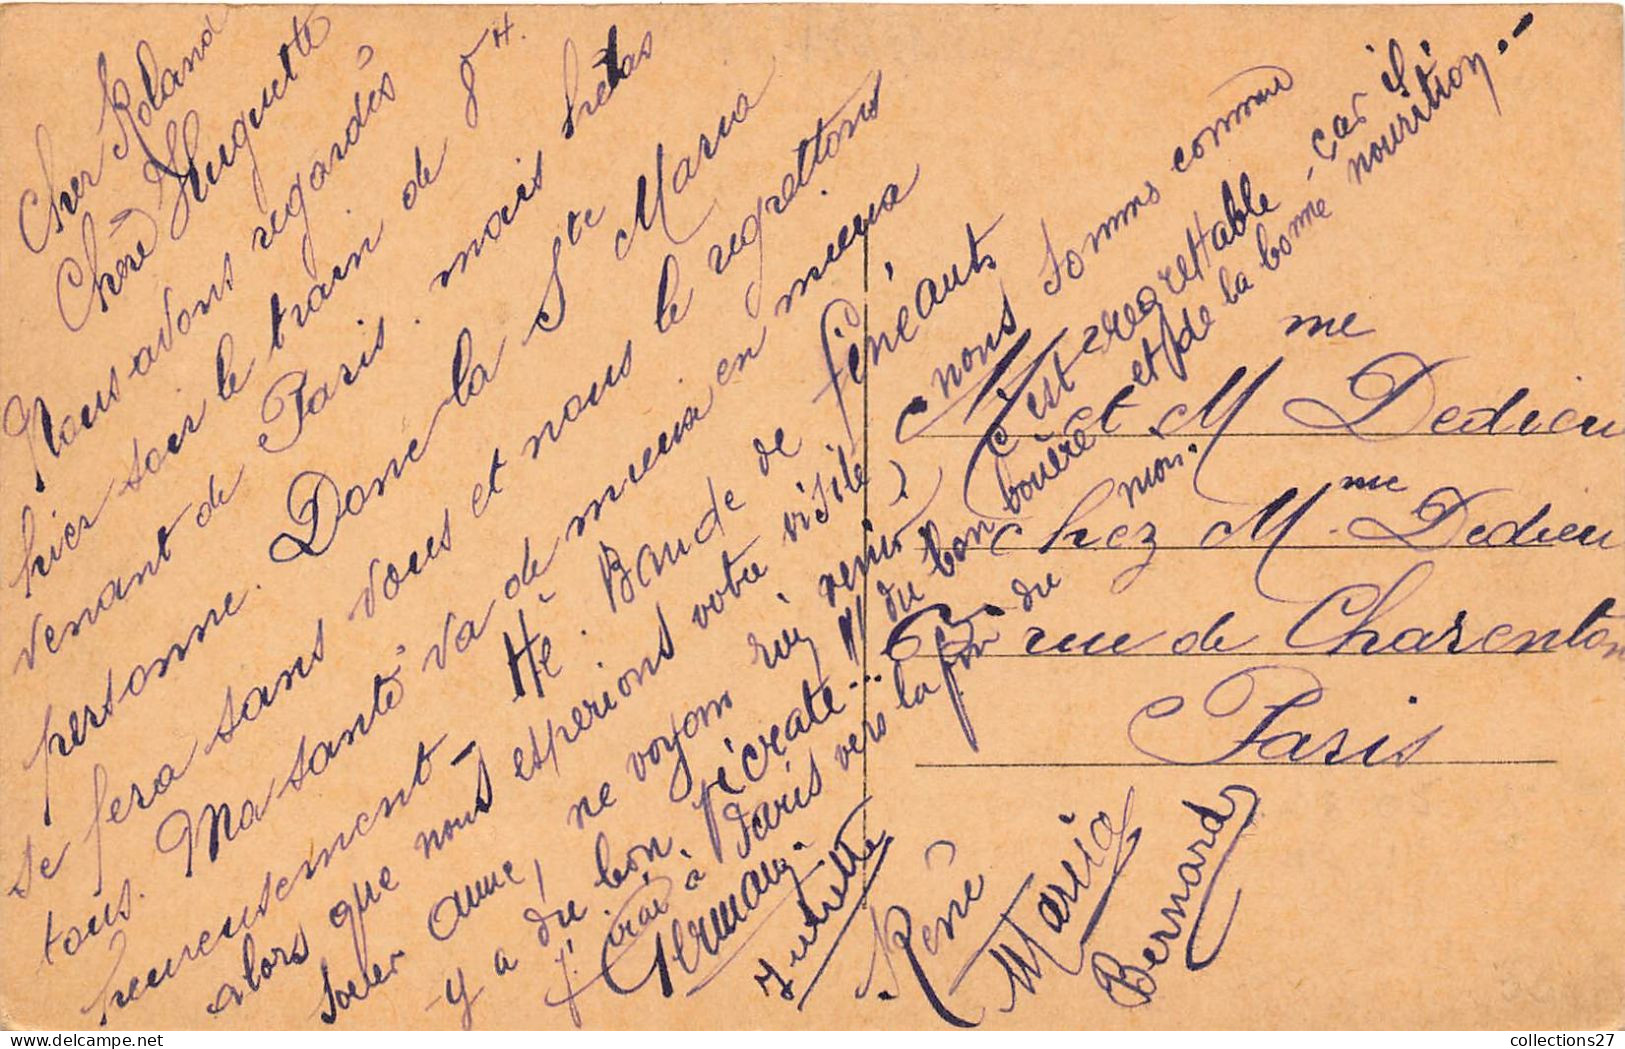 Cher Roland
Chère Huguette
Nous avons regardés
hier soir le train de 8H.
venant de Paris. mais hélas
personne. Donc la Ste Maria
se fera sans vous et nous le regrettons
tous. Ma santé va de mieux en mieux
heureusement -
Hé. Bande de fénéants
alors que nous espérions votre visite
soeur anne, ne voyons rien venir ?
nous sommes comme
C'est regrettable - car il
y a du bon Picrate... du bon
et de la bonne nourriture. -
J'irai à Paris vers la fin du mois.
Germain.
Juliette
René
Maria
Bernard
M et Mme Dedieu
Chez Mme Dedieu
rue de Charenton
Paris
collections27